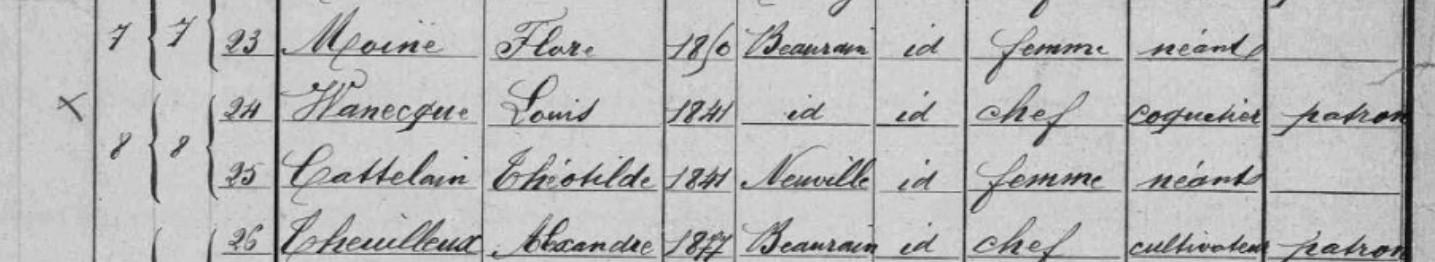 7 7 23 Moine Flore 1850 Beaurain id femme néant
24 Wanecque Louis 1841 id id chef coquetier patron
8 8
25 Cattelain Théotilde 1841 Neuville id femme néant
26 Theuilleux Alexandre 1877 Beaurain id chef cultivateur patron